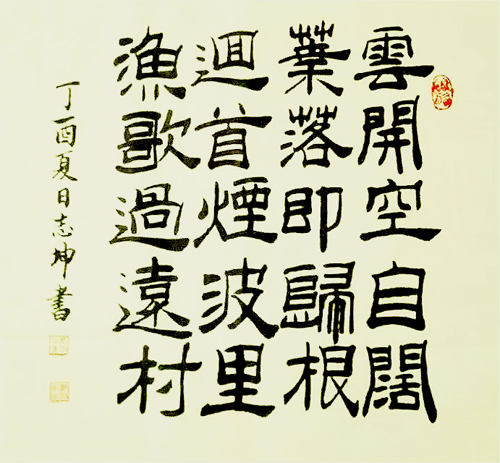 雲開空自闊
葉落即歸根
迴首煙波里
漁歌過遠村
丁酉夏日志坤書